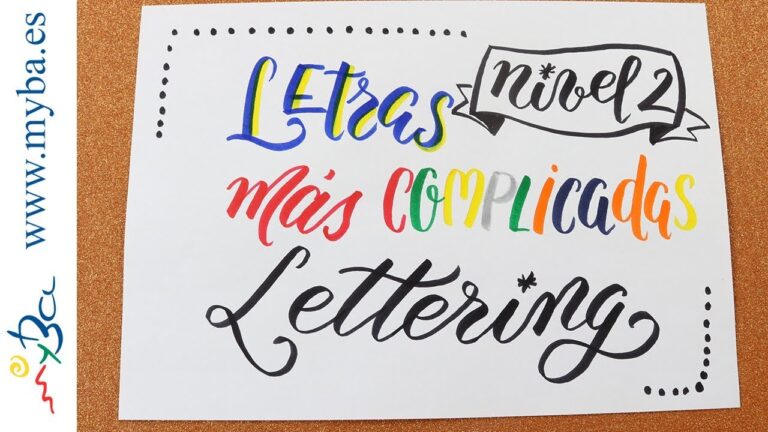 www.myba.es
myBa
Letras
nivel 2
más complicadas
Lettering